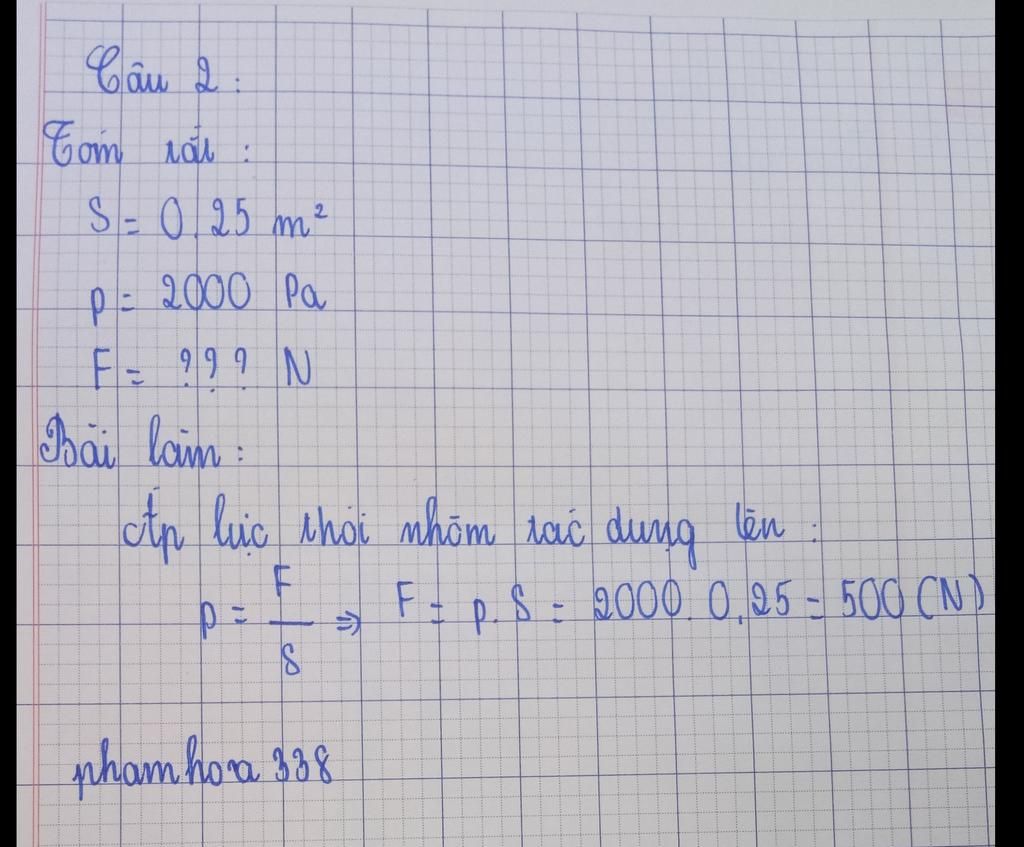 Câu 2:
Tóm tắt:
S = 0,25 m²
p = 2000 Pa
F = ??? N
Bài làm:
Áp lực thỏi nhôm tác dụng lên:
p = F/S ⇒ F = p.S = 2000.0,25 = 500 (N)
phamhoa338